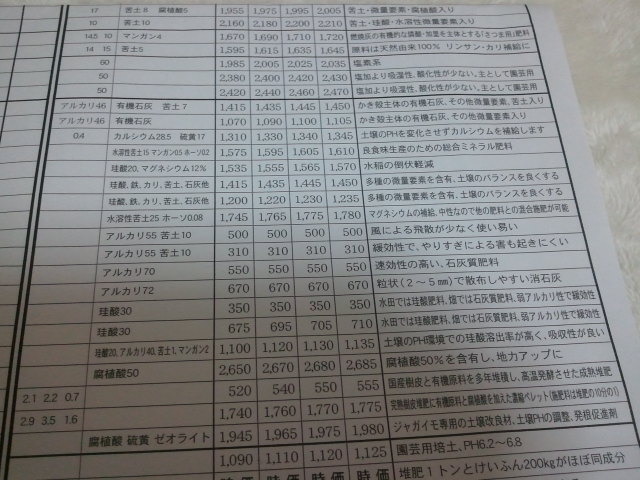 17 苦土8 腐植酸5 1,955 1,975 1,995 2,005 苦土・微量要素・腐植酸入り
10 苦土10 2,160 2,180 2,200 2,210 苦土・珪酸・水溶性微量要素入り
14.5 10 マンガン4 1,670 1,690 1,710 1,720 燃焼灰の有機的な燐酸・加里を主体とする「さつま宙」肥料
14 15 苦土5 1,595 1,615 1,635 1,645 原料は天然由来100% リンサン・カリ補給に
60 1,985 2,005 2,025 2,035 塩素系
50 2,380 2,400 2,420 2,430 塩加より吸湿性、酸化性が少ない、主として園芸用
50 2,420 2,440 2,460 2,470 塩加より吸湿性、酸化性が少ない、主として園芸用
アルカリ46 有機石灰 苦土7 1,415 1,435 1,445 1,450 かき殻主体の有機石灰、その他微量要素、苦土入り
アルカリ46 有機石灰 1,070 1,090 1,100 1,105 かき殻主体の有機石灰、その他微量要素入り
0.4 カルシウム28.5 硫黄17 1,310 1,330 1,340 1,345 土壌のPHを変化させずカルシウムを補給します
水溶性苦土15 マンガン0.5 ホーソ0.2 1,575 1,595 1,605 1,610 良食味生産のための総合ミネラル肥料
珪酸20、マグネシウム12% 1,535 1,555 1,565 1,570 水稲の倒伏軽減
珪酸、鉄、カリ、苦土、石灰他 1,415 1,435 1,445 1,450 多種の微量要素を含有、土壌のバランスを良くする
珪酸、鉄、カリ、苦土、石灰他 1,200 1,220 1,230 1,235 多種の微量要素を含有、土壌のバランスを良くする
水溶性苦土25 ホーソ0.08 1,745 1,765 1,775 1,780 マグネシウムの補給、中性なので他の肥料との混合施肥が可能
アルカリ55 苦土10 500 500 500 500 風による飛散が少なく使い易い
アルカリ55 苦土10 310 310 310 310 緩効性で、やりすぎによる害も起きにくい
アルカリ70 550 550 550 550 速効性の高い、石灰質肥料
アルカリ72 670 670 670 670 粒状(2~5mm)で散布しやすい消石灰
珪酸30 350 350 350 350 水田では珪酸肥料、畑では石灰質肥料、弱アルカリ性で緩効性
珪酸30 675 695 705 710 水田では珪酸肥料、畑では石灰質肥料、弱アルカリ性で緩効性
珪酸20、アルカリ40、苦土1、マンガン2 1,100 1,120 1,130 1,135 土壌のPH環境での珪酸溶出率が高く、吸収性が良い
腐植酸50 2,650 2,670 2,680 2,685 腐植酸50%を含有し、地力アップに
2.1 2.2 0.7 520 540 550 555 国産樹皮と有機原料を多年堆積し、高温発酵させた完熟堆肥
2.9 3.5 1.6 1,740 1,760 1,770 1,775 完熟樹皮堆肥に有機原料と腐植酸を加えた濃縮ペレット(施肥料は堆肥の10分の1)
腐植酸 硫黄 ゼオライト 1,945 1,965 1,975 1,980 ジャガイモ専用の土壌改良材、土壌PHの調整、発根促進剤
1,090 1,110 1,120 1,125 園芸用培土、PH6.2~6.8
時価 時価 時価 時価 堆肥1トンとけいふん200kgがほぼ同成分